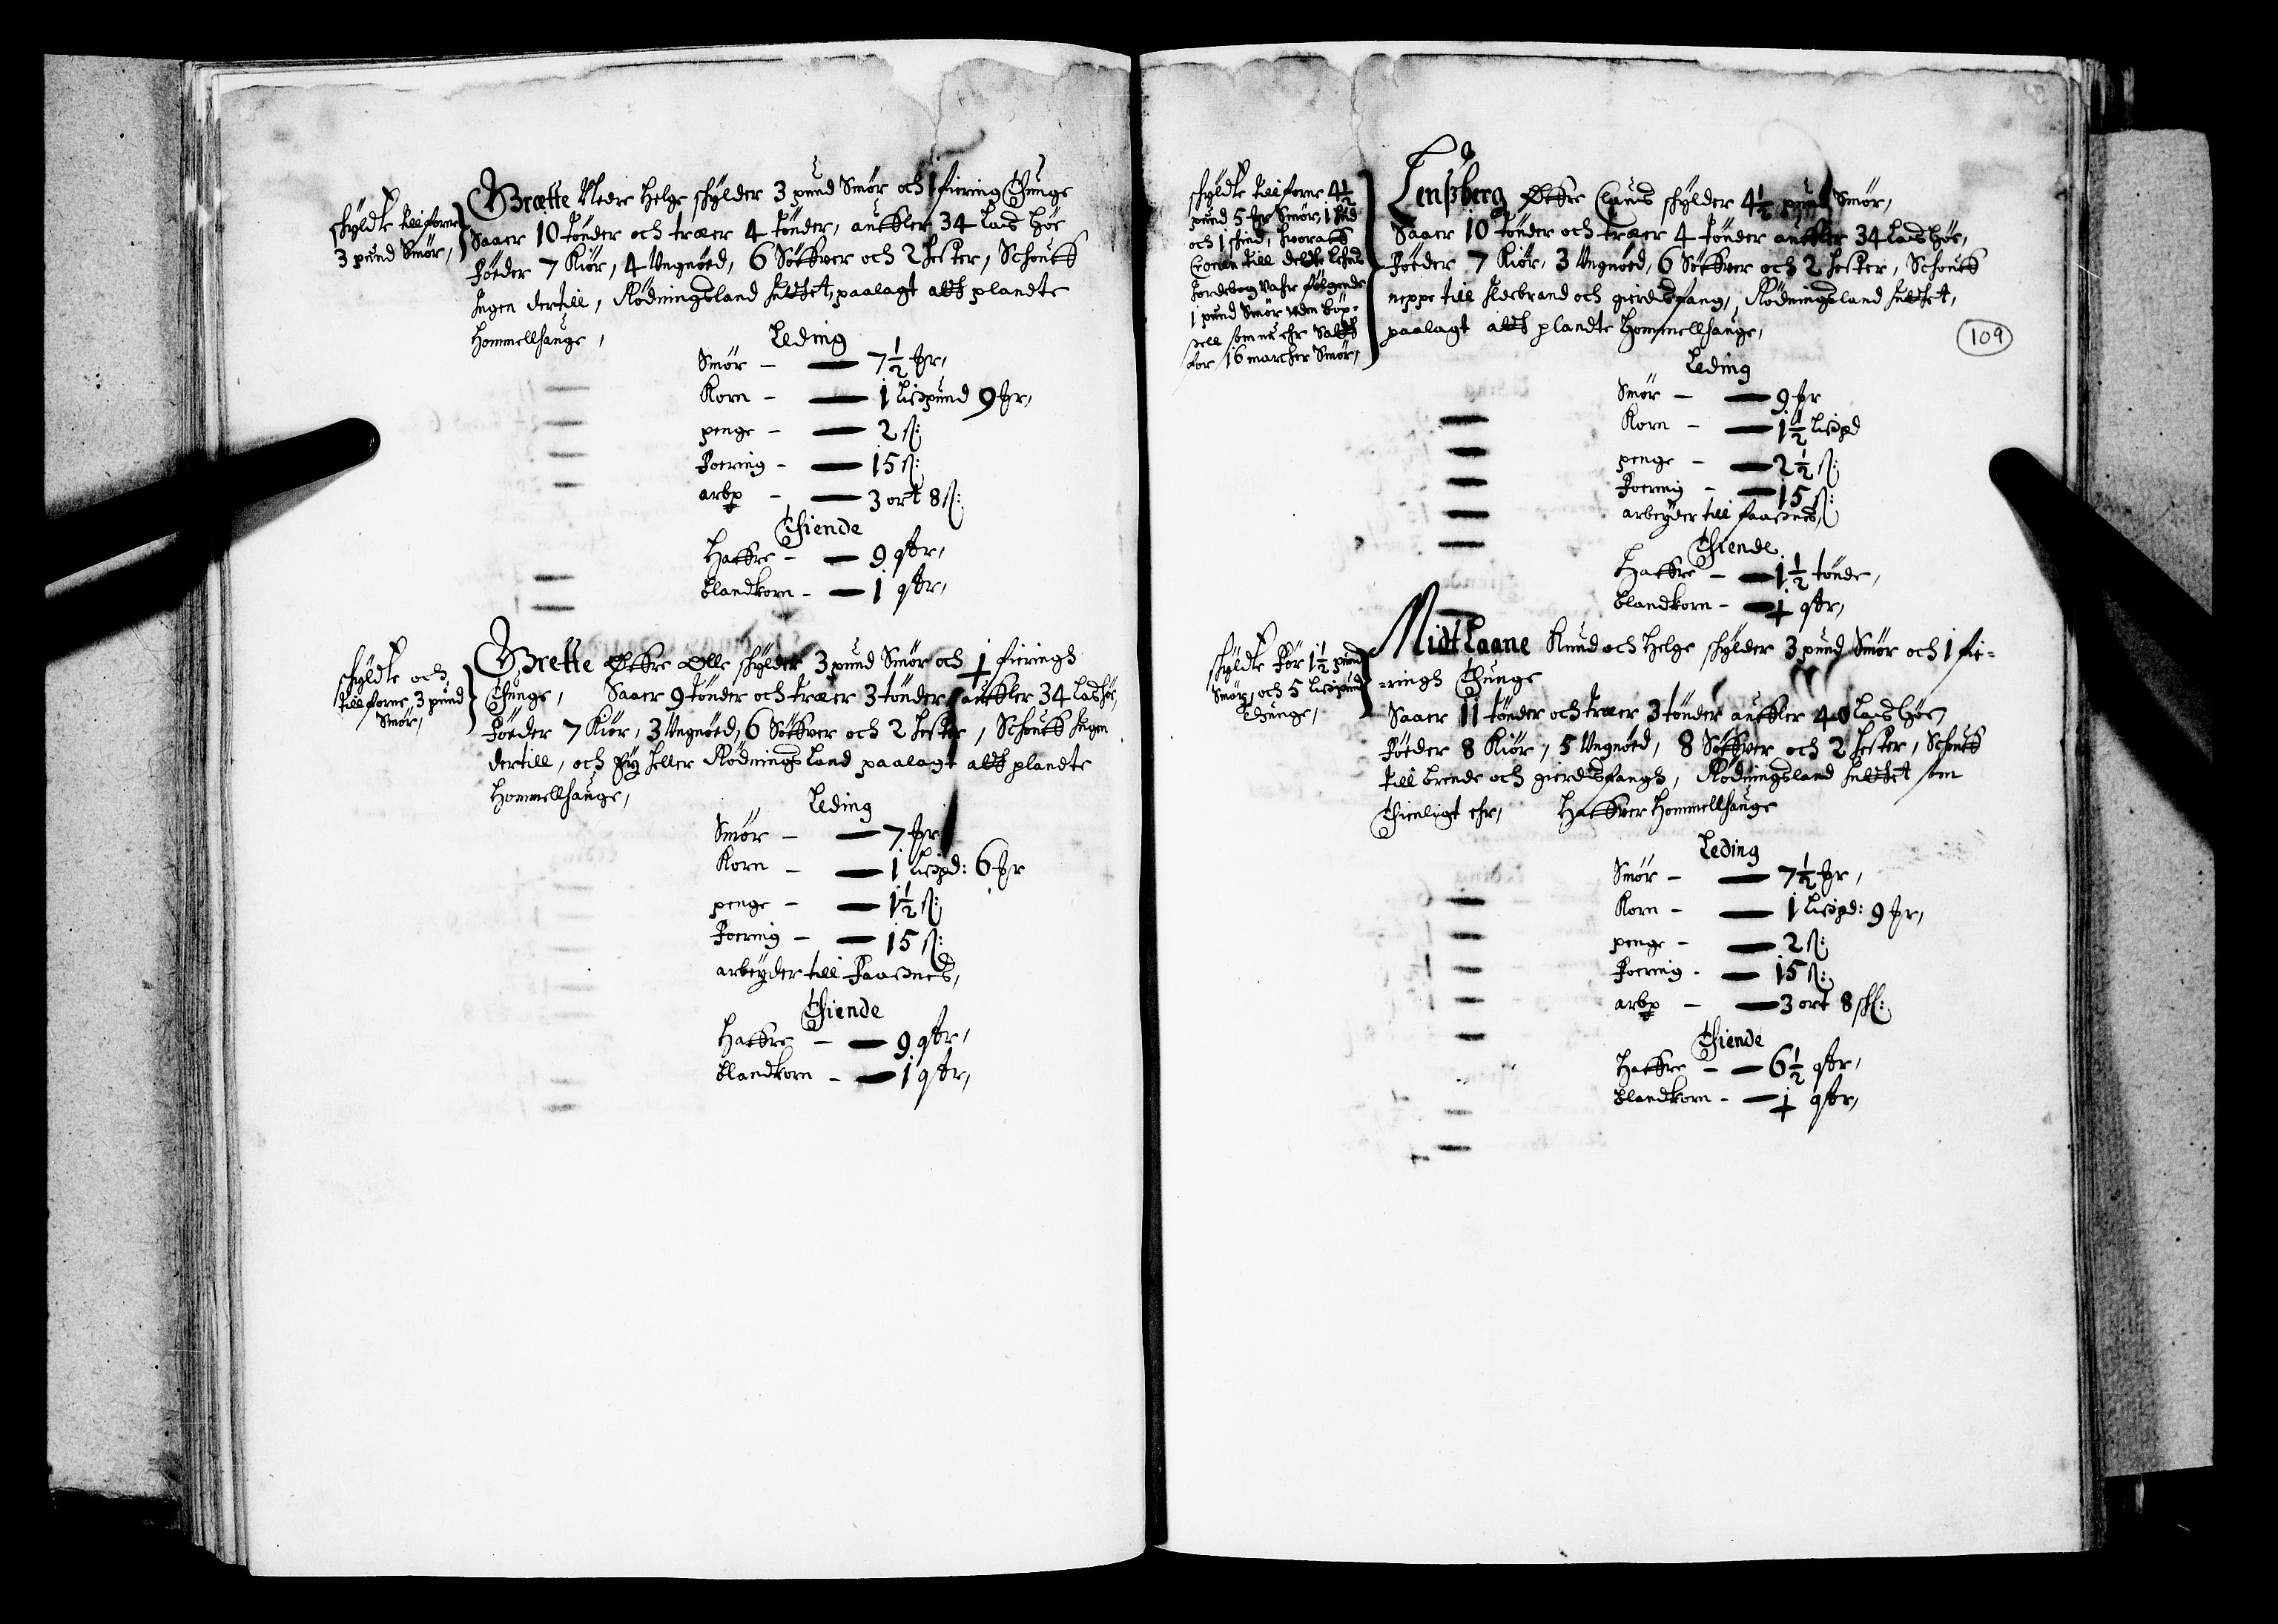 skyldte tillforne
3 pund Smør,
Grætte Nedre Helge skylder 3 pund Smør och 1 fiering Thunge
Saaer 10 tønder och træer 4 tønder, auffler 34 Lads høe
Føeder 7 Kiør, 4 Ungnøed, 6 Söffver och 2 hester, Schouff
Ingen dertill, Rødningsland indtet, paalagt att plandte
Hommellhauge,
Leding
Smør - 7½ #r,
Korn - 1 Lispund 9 #r,
penge - 2 ß:
Foering - 15 ß:
arbp - 3 ort 8 ß:
Thiende
Haffre - 9 qtr,
blandkorn - 1 qtr,
skyldte och
tillforne 3 pund
Smør,
Grette Øffre Olle skylder 3 pund Smør och 1 fieringh
Thunge, Saaer 9 tønder och træer 3 tønder, auffler 34 Lads høe,
Føeder 7 Kiør, 3 Ungnøed, 6 Söffver och 2 hester, Schouff Ingen
dertill, och Ey heller Rødnings Land paalagt att plandte
Hommellhauge,
Leding
Smør - 7 #r
Korn - 1 Lispd: 6 #r
penge - 1½ ß:
Foering - 15 ß:
arbeyder till Faasnes,
Thiende
Haffre - 9 qtr,
blandkorn - 1 qtr,
109
skyldte tillforne 4½
pund 5 #r Smør, 1 hud
och 1 skind, hvoraff
Cronen till deelte
Jordebog vahr følgende
1 pund Smør uden
som nu ehr
for 16 marcher Smør,
Lensberg Øffre Clauds skylder 4½ pund Smør,
Saaer 10 tønder och træer 4 tønder auffler 34 Lads høe,
Føeder 7 Kiør, 3 Ungnøed, 6 Söffver och 2 hester, Schouff
neppe till Ildebrand och gierdsfang, Rødningsland indtet,
paalagt att plandte Hommellhauge,
Leding
Smør - 9 #r
Korn - 1½ Lispd
penge - 2½ ß:
Foering - 15 ß:
arbeyder till Faasnes,
Thiende
Haffre - 1½ tønde,
blandkorn - 1 qtr,
skyldte Før 1½ pund
Smør, och 5 Lispund
Thunge,
Midt Laane Knud och Helge skylder 3 pund Smør och 1 fie=
=ringh Thunge
Saaer 11 tønder och træer 3 tønder auffler 40 Lads høe,
Føeder 8 Kiør, 5 Ungnøed, 8 Söffver och 2 hester, Schouff
till brende och gierdsfangh, Rødningsland indtet som
Thienligt ehr, Haffver Hommellhauge
Leding
Smør - 7½ #r,
Korn - 1 Lispd: 9 #r,
penge - 2 ß:
Foering - 15 ß:
arbp - 3 ort 8 skl:
Thiende
Haffre - 6½ qtr,
blandkorn - 1 qtr,